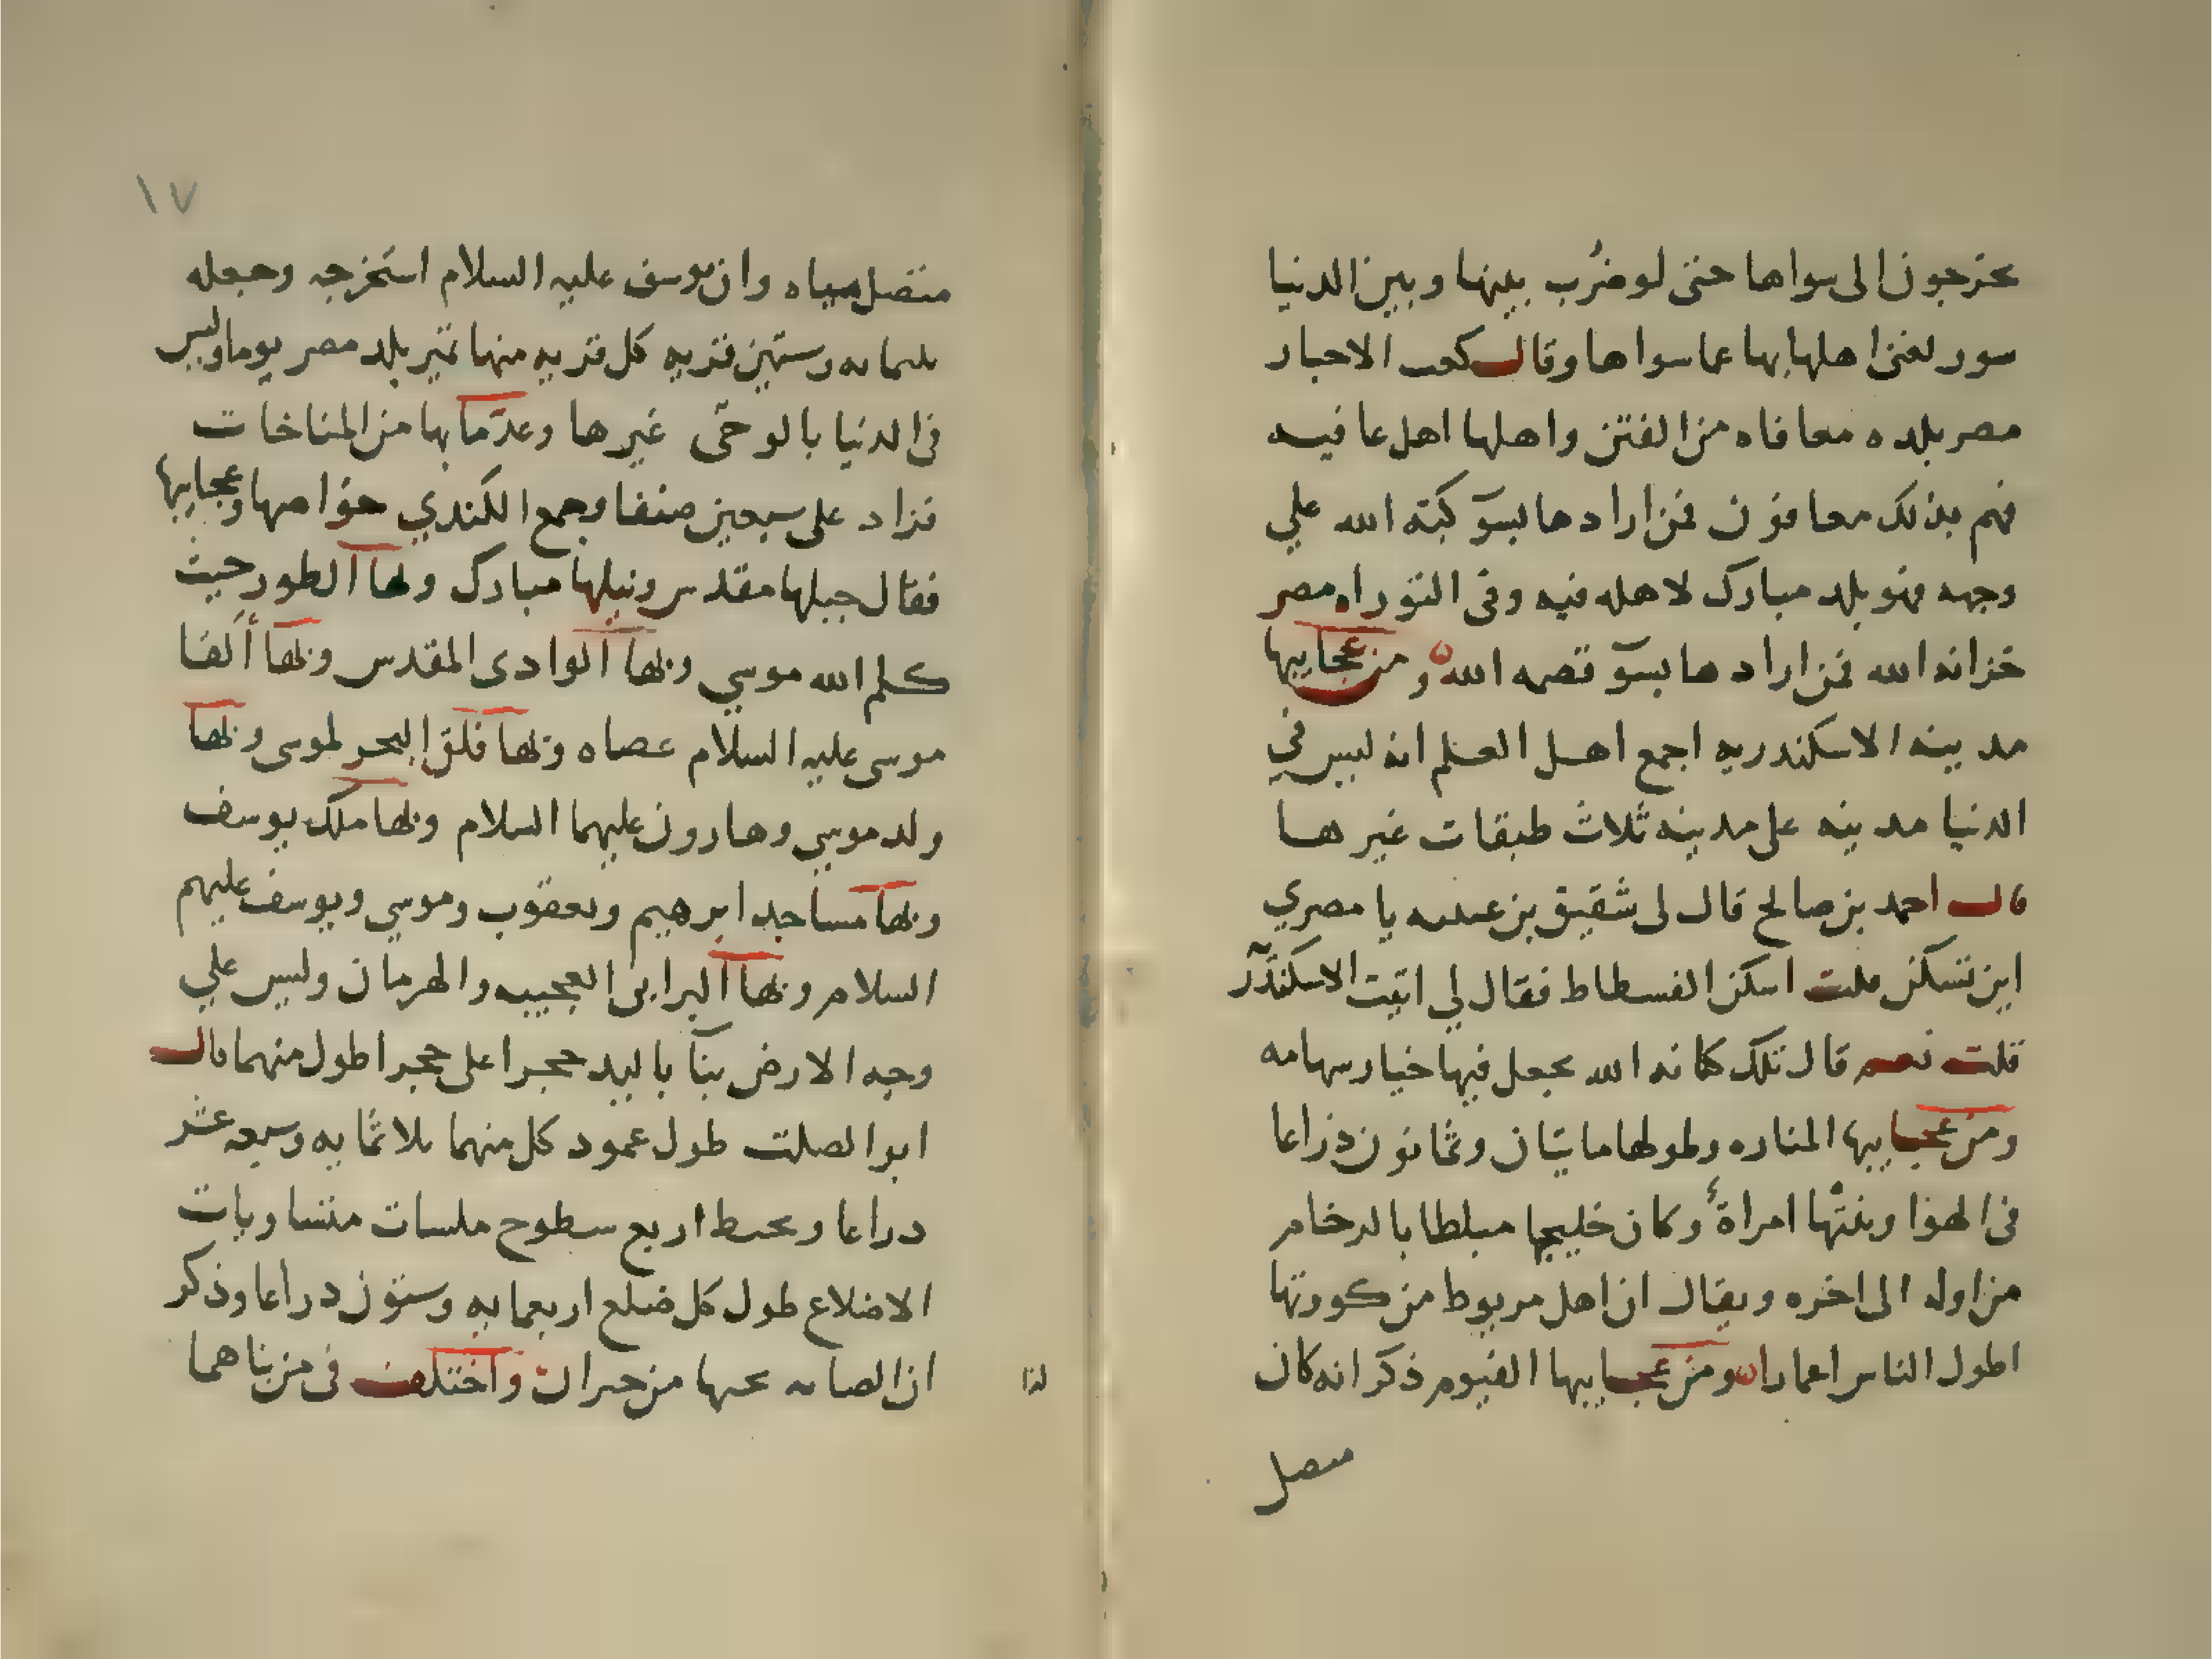 يخرجون الى سواها حتى لو ضُرب بينها وبين الدنيا
سور لغنى اهلها بها عما سواها وقال كعب الاحبار
مصر بلده معافاه من الفتن واهلها اهل عافيه
فهم بذلك معافون فمن ارادها بسوٓ كبته الله علي
وجهه فهو بلد مبارك لاهله فيه وفى التوراه مصر
خزانه الله فمن ارادها بسوٓ قصمه الله ومن عجايبها
مدينه الاسكندريه اجمع اهل العلم انه ليس في
الدنيا مدينه على مدينه ثلاث طبقات غيرها
قال احمد بن صالح قال لى شقيق بن عيينه يا مصري
اين تسكن قلت اسكن الفسطاط فقال لي اتيت الاسكندر
قلت نعم قال تلك كنانه الله يجعل فيها خيار سهامه
ومن عجايبها المناره وطولها مايتان وثمانون ذراعا
فى الهوا وبنتها امراة وكان خليجها مبلطا بالرخام
من اوله الى اخره ويقال ان اهل مريوط من كورتها
اطول الناس اعمارا ومن عجايبها الفيوم ذكر انه كان
١٧
متصل مياه وان يوسف عليه السلام استخرجه وجعله
ثلثمايه وستين قريه كل قريه منها تمير بلد مصر يوما وليس
فى الدنيا بالوحى غيرها وعد ما بها من المناخات
فزاد على سبعين صنفا وجمع الكندي خواصها وعجايبها
فقال جبلها مقدس ونيلها مبارك وبها الطور حيث
كلم الله موسي وبها الوادى المقدس وبها ألقا
موسى عليه السلام عصاه وبها فلق البحر لموسى وبها
ولد موسي وهارون عليهما السلام وبها ملك يوسف
وبها مساجد ابرهيم ويعقوب وموسي ويوسف عليهم
السلام وبها البرابى العجيبه والهرمان وليس علي
وجه الارض بنآ باليد حجرا على حجر اطول منهما قال
ابوالصلت طول عمود كل منهما ثلاثمايه وسبعه عشر
دراعا ويحيط اربع سطوح ملسات متساويات
الاضلاع طول كل ضلع اربعمايه وستون دراعا وذكر
ان الصابه تحجها من حران واختلف فى من بناهما